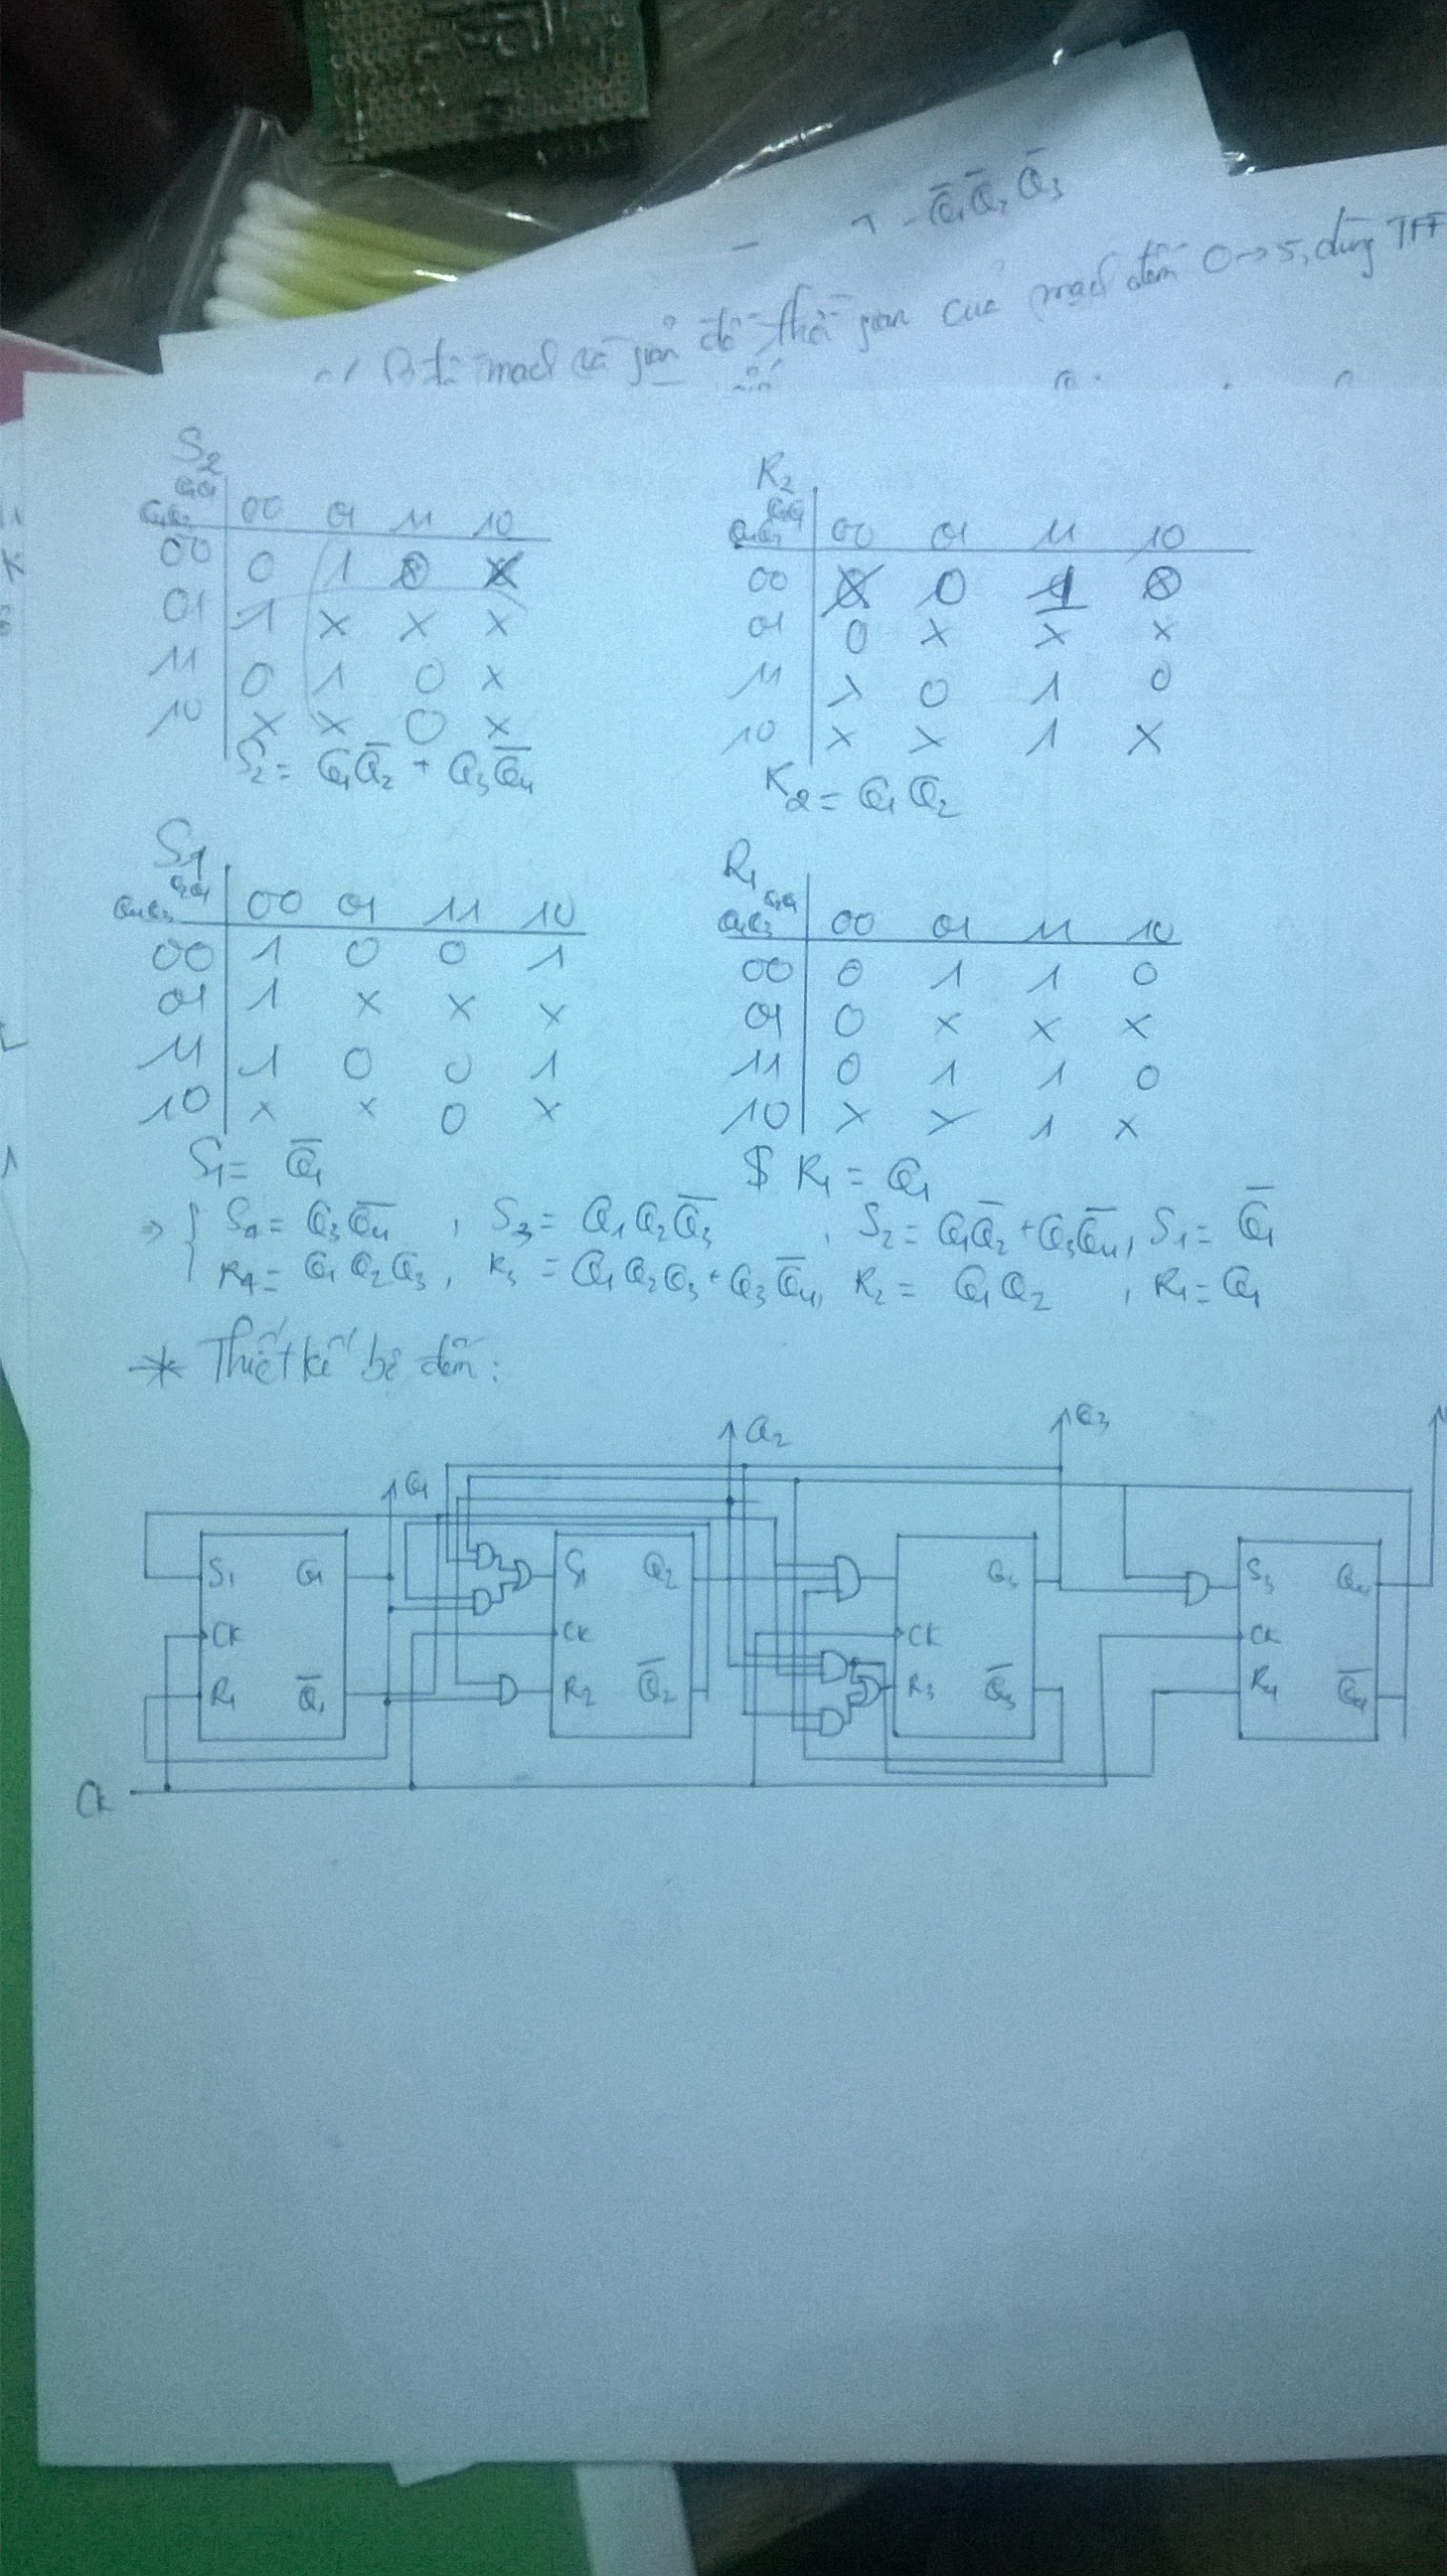 Q̄1 Q̄2 Q̄3
mạch và giản đồ thời gian của mạch đếm 0→5, dùng TFF
S2
00 01 11 10
00 0 1
01 1 x x x
11 0 1 0 x
10 x x 0 x
S2 = Q1Q̄2 + Q3Q̄4
R2
00 01 11 10
00 0 1
01 0 x x x
11 x 0 1 0
10 x x 1 x
R2 = Q1 Q2
S1
Q2Q1
Q4Q3 00 01 11 10
00 1 0 0 1
01 1 x x x
11 1 0 0 1
10 x x 0 x
S1 = Q̄1
R1
Q2Q1
Q4Q3 00 01 11 10
00 0 1 1 0
01 0 x x x
11 0 1 1 0
10 x x 1 x
R1 = Q1
⇒ { S4 = Q3Q̄4 , S3 = Q1Q2Q̄3 , S2 = Q1Q̄2 + Q3Q̄4, S1 = Q̄1
R4 = Q1Q2Q3, R3 = Q1Q2Q3 + Q3Q̄4, R2 = Q1Q2 , R1 = Q1
* Thiết kế bộ đếm:
Q1 Q2 Q3
S1 Q1 S1 Q2 Q3 S3 Q4
CK CK CK CK
R1 Q̄1 R2 Q̄2 R3 Q̄3 R4 Q̄4
CK